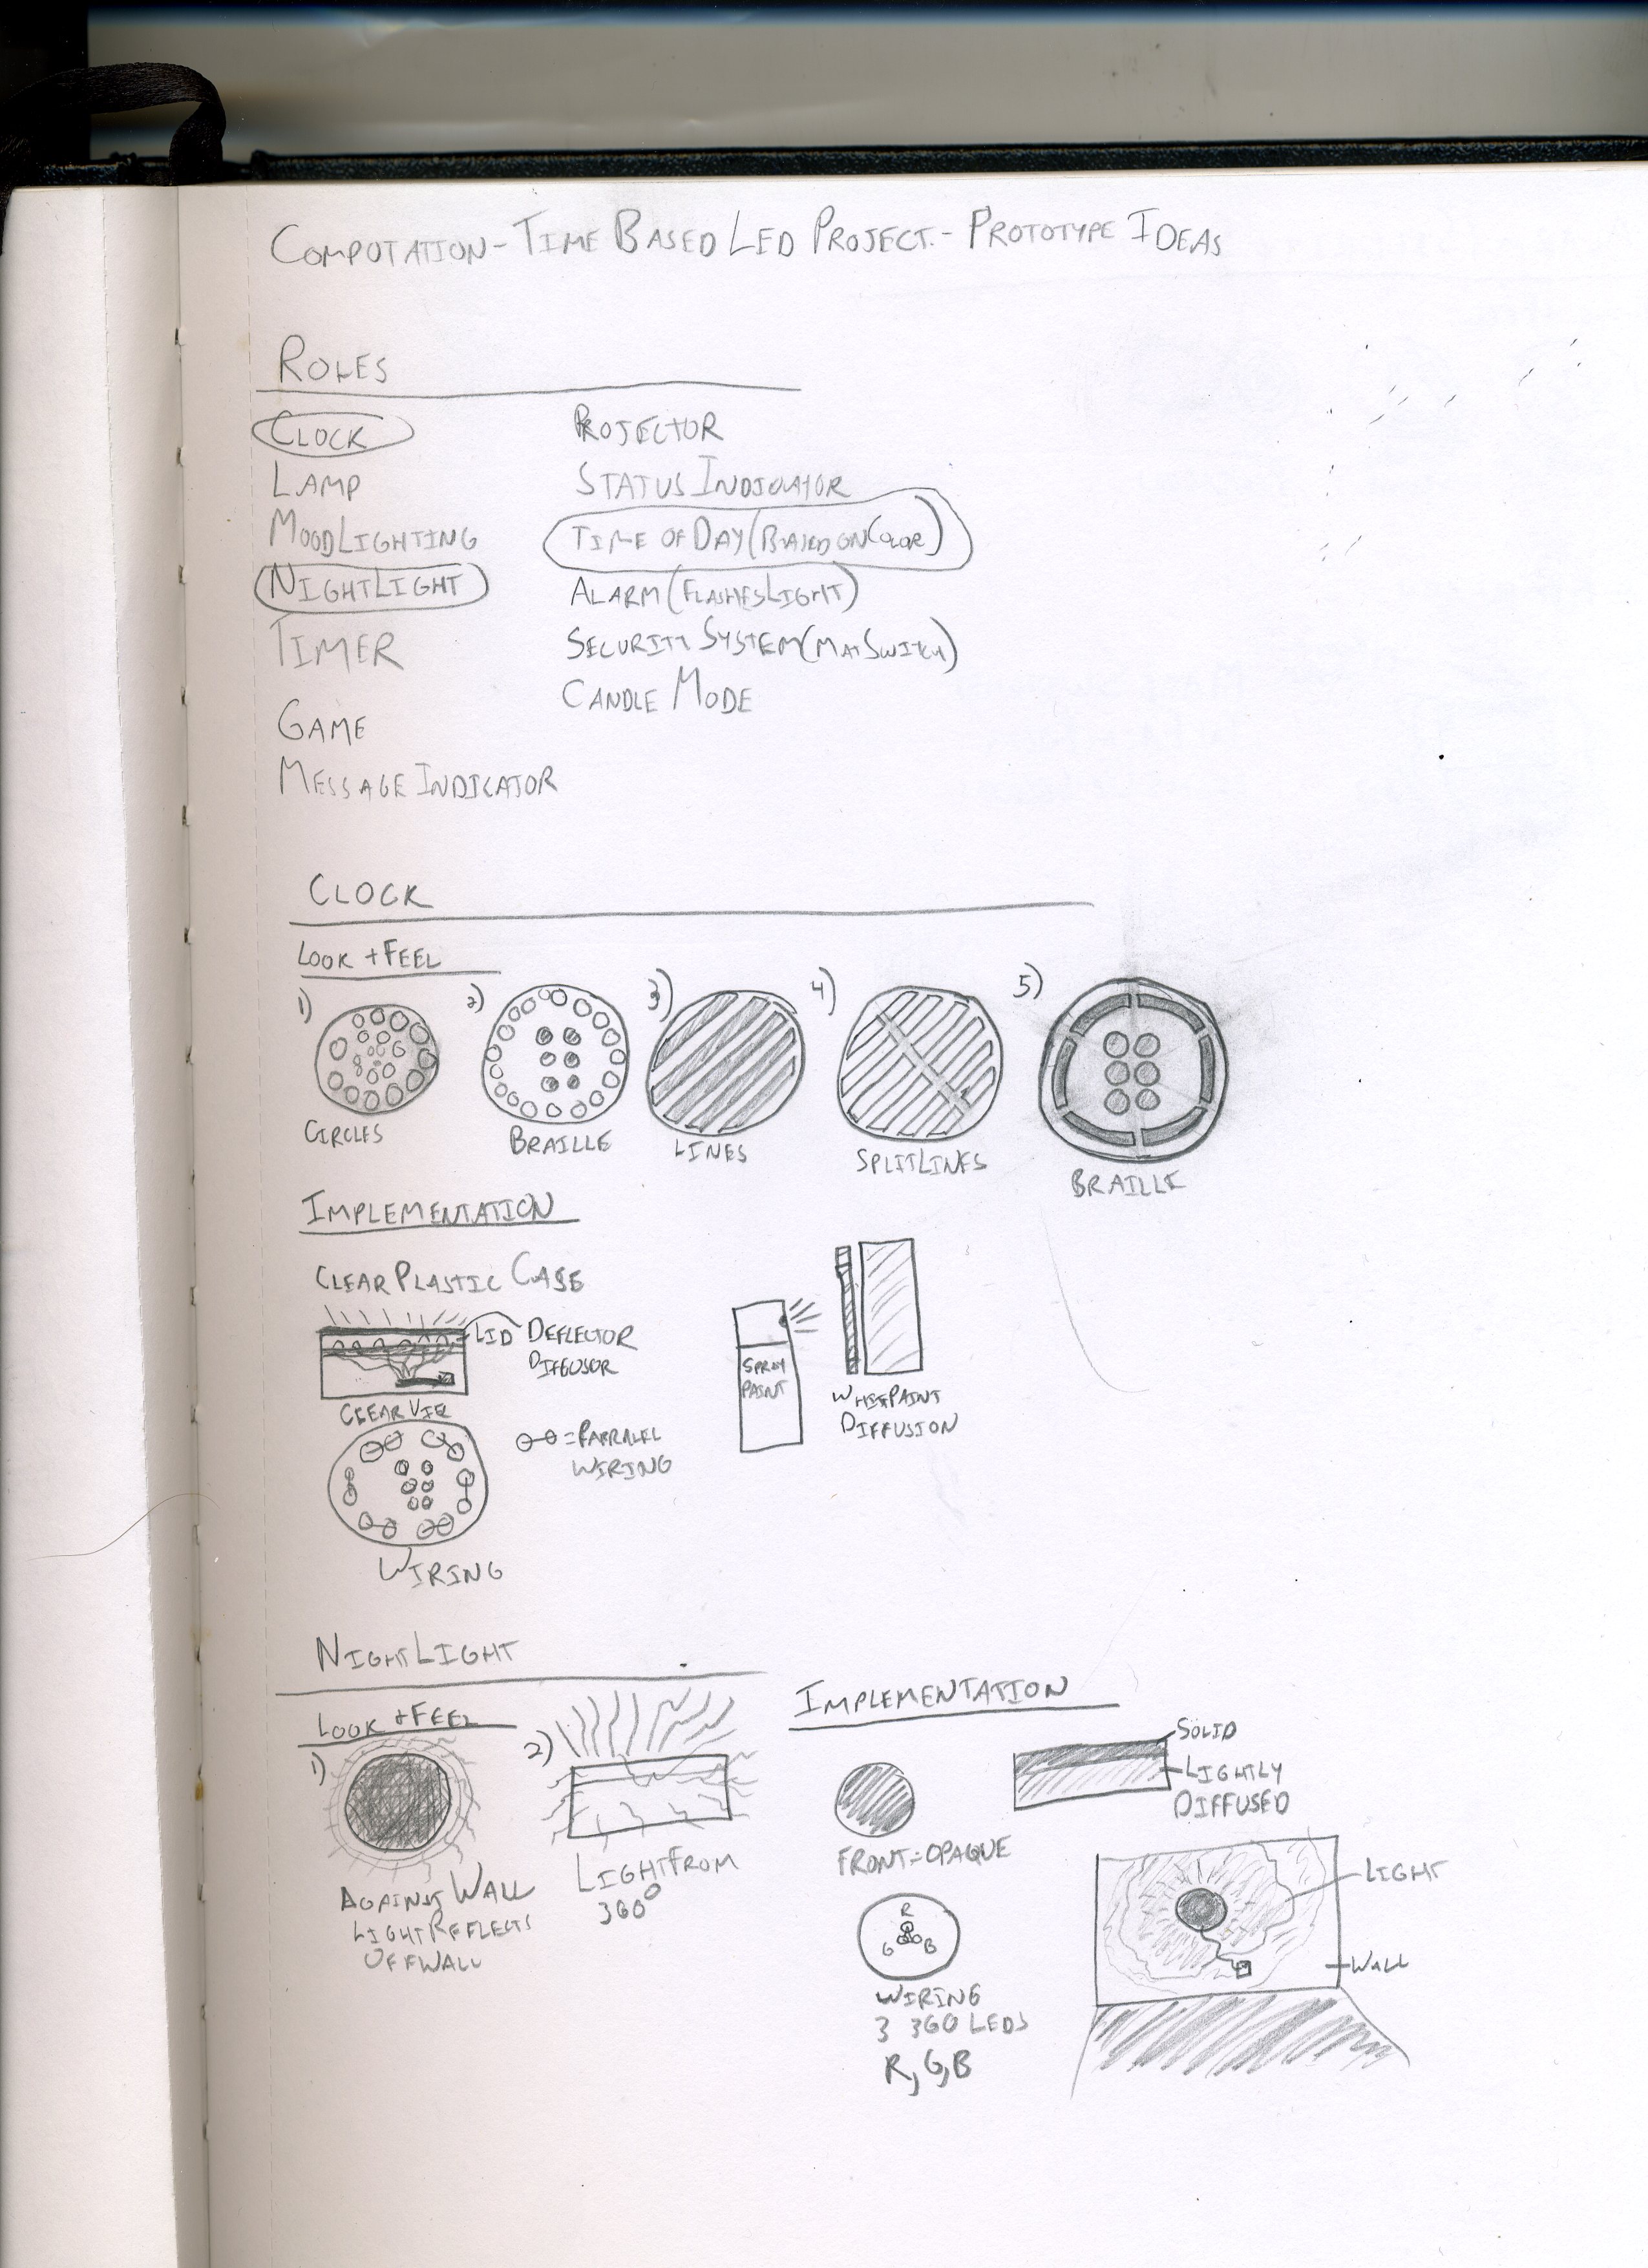 COMPUTATION - TIME BASED LED PROJECT. - PROTOTYPE IDEAS
ROLES
CLOCK
LAMP
MOOD LIGHTING
NIGHTLIGHT
TIMER
GAME
MESSAGE INDICATOR
PROJECTOR
STATUS INDICATOR
TIME OF DAY (BASED ON COLOR)
ALARM (FLASHES LIGHT)
SECURITY SYSTEM (MAT SWITCH)
CANDLE MODE
CLOCK
LOOK + FEEL
1)
2)
3)
4)
5)
CIRCLES
BRAILLE
LINES
SPLIT LINES
BRAILLE
IMPLEMENTATION
CLEAR PLASTIC CASE
LID DEFLECTOR
DIFFUSOR
CLEAR VIEW
= PARRALEL
WIRING
WIRING
SPRAY
PAINT
WHITE PAINT
DIFFUSION
NIGHTLIGHT
LOOK + FEEL
1)
2)
AGAINST WALL
LIGHT REFLECTS
OFF WALL
LIGHT FROM
360°
IMPLEMENTATION
FRONT = OPAQUE
SOLID
LIGHTLY
DIFFUSED
R
G B
WIRING
3 360 LEDS
R, G, B
LIGHT
WALL